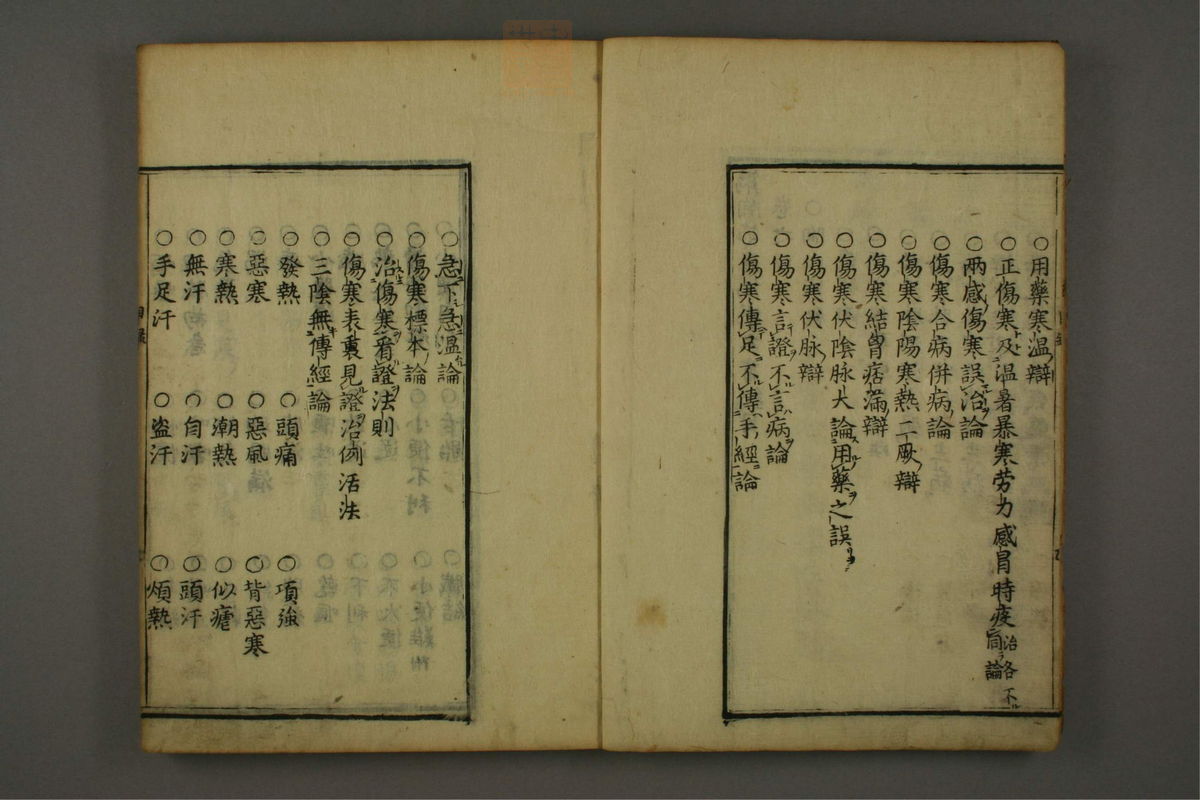 ○用藥寒温辯
○正傷寒及温暑暴寒劳力感冒時疫治各不同論
○兩感傷寒誤治論
○傷寒合病併病論
○傷寒陰陽寒熱二厥辯
○傷寒結胷痞滿辯
○傷寒伏陰脉大論用藥之誤
○傷寒伏脉辯
○傷寒言證不言病論
○傷寒傳足不傳手經論
○急下急温論
○傷寒標本論
○治傷寒看證法則
○傷寒表裏見證治例活法
○三陰無傳經論
○發熱 ○頭痛 ○項強
○惡寒 ○惡風 ○背惡寒
○寒熱 ○潮熱 ○似瘧
○無汗 ○自汗 ○頭汗
○手足汗 ○盗汗 ○煩熱